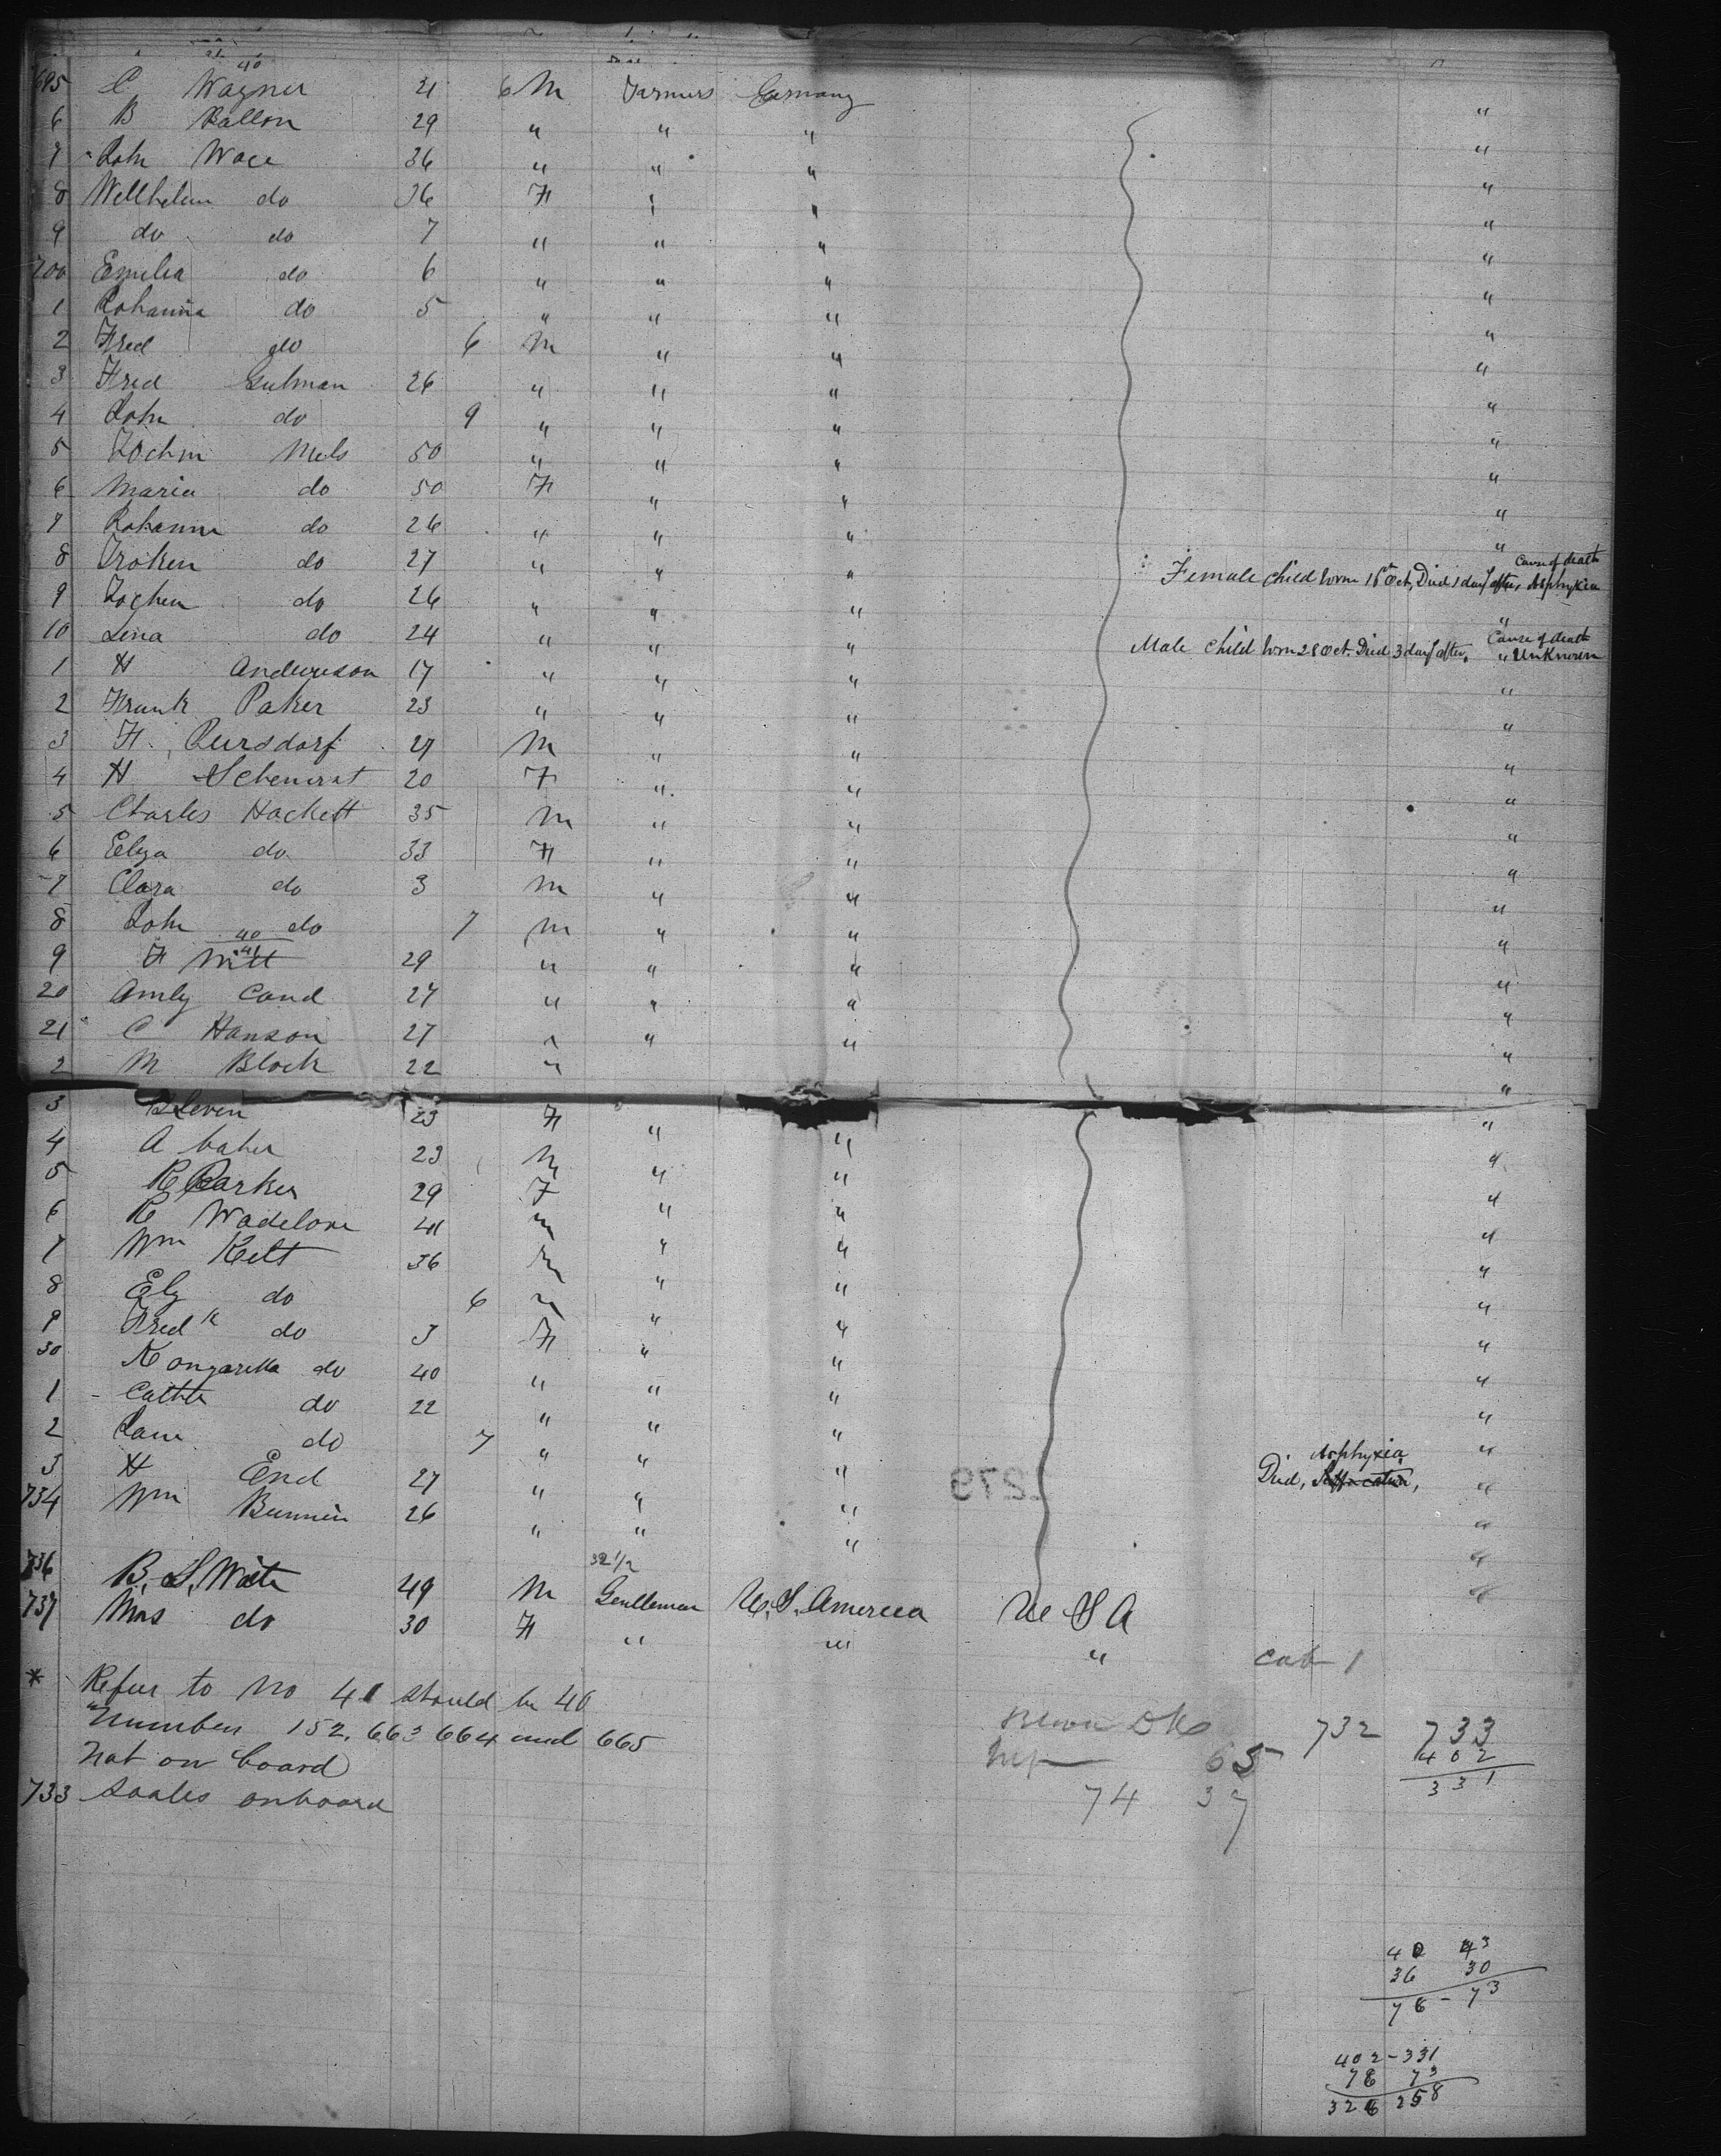 40
695 C Wagner 21 6 M Farmers Germany
6 B Ballon 29 " " " "
7 Joh Wace 36 " " " "
8 Wellhelm do 36 F " " "
9 do do 7 " " " "
700 Emelia do 6 " " " "
1 Johanna do 5 " " " "
2 Fred do 6 M " " "
3 Fred Gutman 26 " " " "
4 Joh do 9 " " " "
5 Jochin Mels 50 " " " "
6 Maria do 50 F " " "
7 Johanna do 26 " " " "
8 Troken do 27 " " " Female child born 16th Oct, Died 1 day after, Cause of death Asphyxia
9 Jochen do 26 " " " "
10 Lena do 24 " " " Male child born 28 Oct. Died 3 days after, Cause of death " Unknown
1 H Anderson 17 " " " "
2 Frank Paker 23 " " " "
3 F. Rursdorf 27 M " " "
4 H Schenirat 20 F " " "
5 Charles Hackett 35 M " " "
6 Eliza do 33 F " " "
7 Clara do 3 M " " "
8 Joh do 7 M " " "
40
41
9 F Mitt 29 " " " "
20 Amly Cand 27 " " " "
21 C Hanson 27 " " " "
2 M Block 22 " "
3 B Leven 23 F " " "
4 A baker 23 M " " "
5 R Parker 29 F " " "
6 R Wadelone 41 M " " "
7 Wm Kelt 36 M " " "
8 Ely do 6 M " " "
9 Fredk do 3 F " " "
30 Kongaretta do 40 " " " "
1 Cathe do 22 " " " "
2 Jam do 7 " " " "
3 H End 27 " " " Died, Asphyxia, "
734 Wm Bunnin 26 " " " "
32 1/2
736 B. S. Waite 49 M Gentleman U. S. America U S A
737 Mrs do 30 F " " "
cab 1
* Refur to No 41 should be 40
"Number 152, 663 664 and 665
Not on board
733 Soales onboard
732 733
402
331
65
74 37
1279
40 43
36 30
76 - 73
402 - 331
76 73
326 258